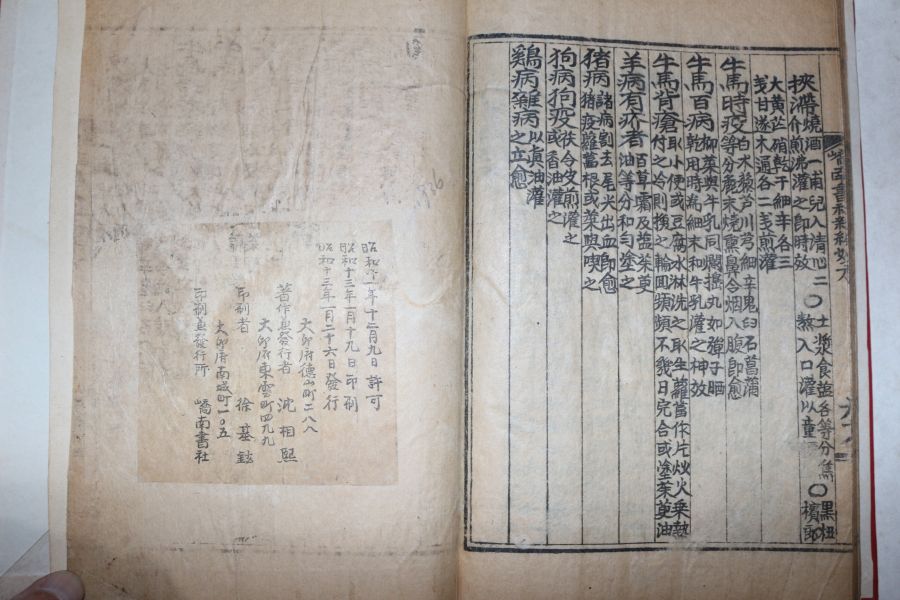 挾滯燒酒一甫兒入淸心二〇土漿食盐各等分焦〇黑丑
介煎沸灌之卽時效 熬入口灌以童 檳郞
大黃芷硝乾干細辛各三
戔甘遂木通各二戔煎灌
牛馬時疫白朮藜芦川芎細辛鬼臼石菖蒲
等分麁末燒熏鼻令烟入腹卽愈
牛馬百病柳葉與牛乳同爛搗丸如彈子晒
乾用時爲細末和牛乳灌之神效
牛馬背瘡取小便或豆腐水淋洗之取生蘿葍作片炏火乘熱
付之冷則換之輪回頻頻不幾日完合或塗茱萸油
羊病有疥者百草霜及盐茱萸
油等分和勻塗之
猪病諸病割去尾尖出血卽愈
猪疫蘿葍根或葉與喫之
狗病狗疫
或香油灌之
鷄病雜病以眞油灌
之立愈
嶠南書社
昭和十一年十二月九日許可
昭和十三年一月十九日印刷
昭和十三年一月二十六日發行
大邱府德山町二八八
著作兼發行者 沈相熙
大邱府東雲町四九九
印刷者 徐基鉉
大邱府南城町一〇五
印刷兼發行所 嶠南書社